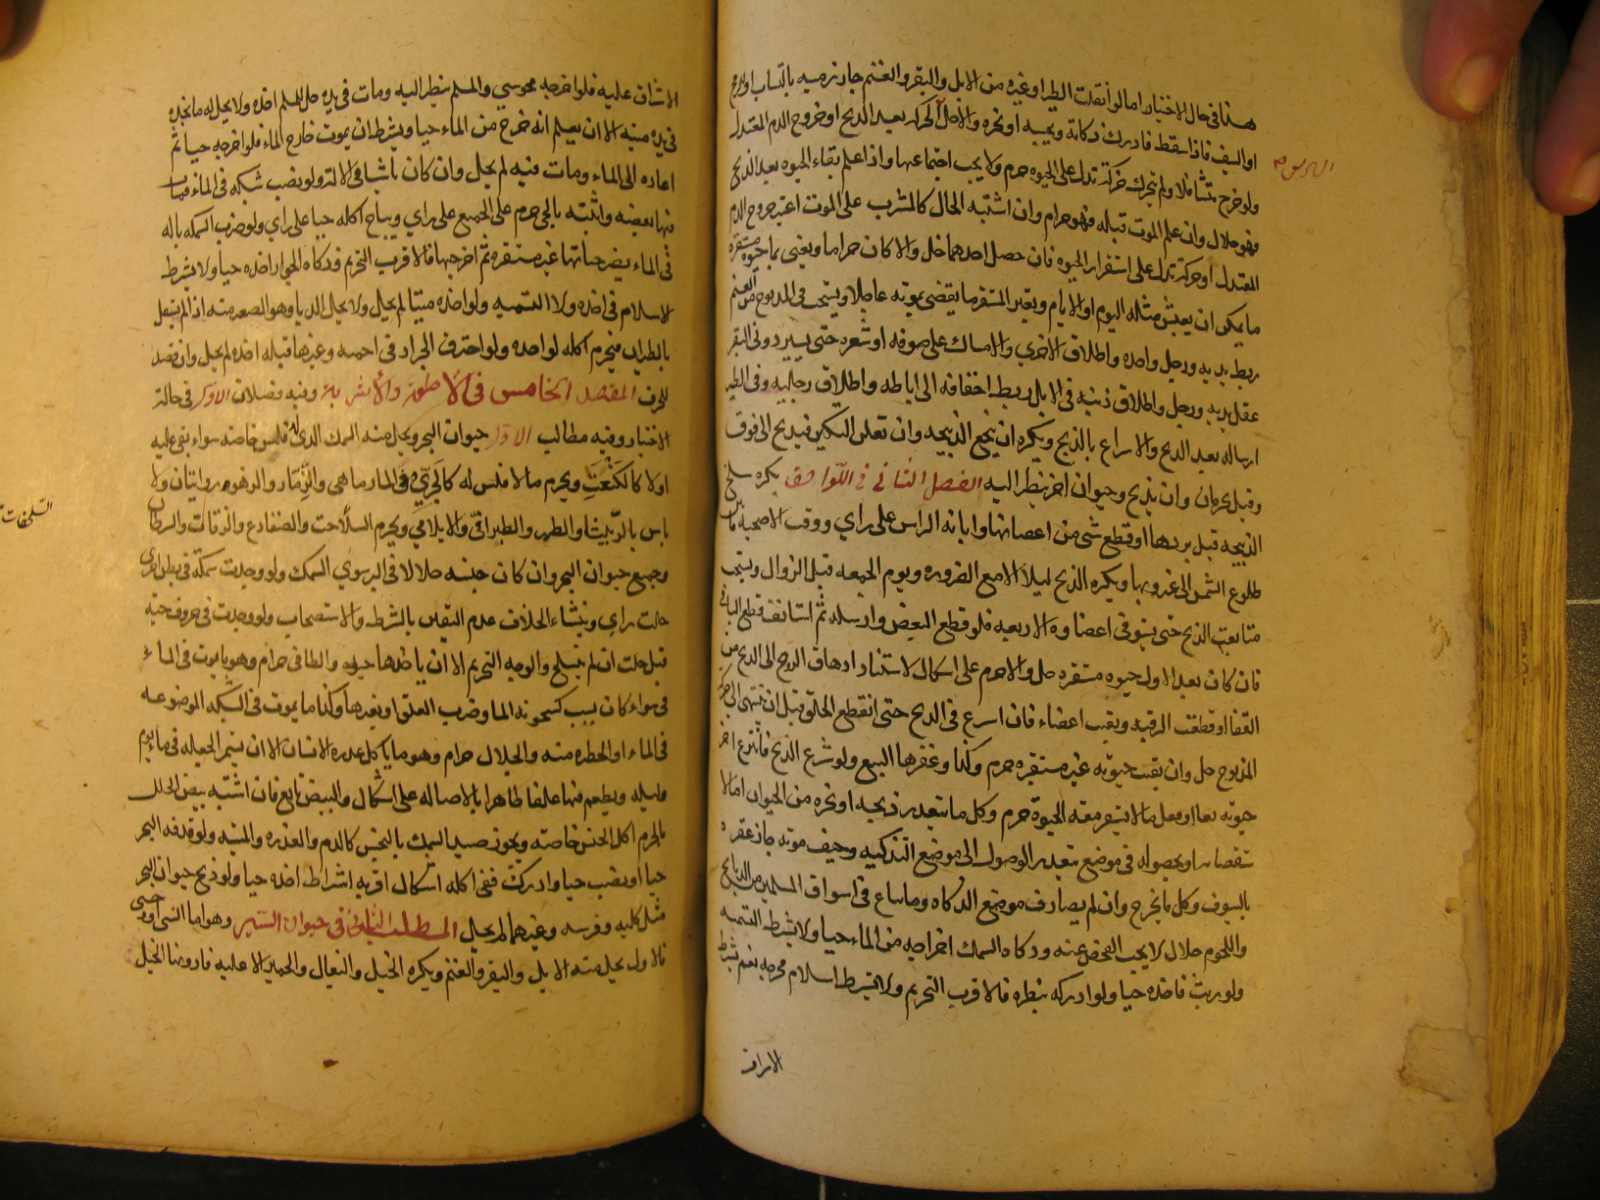 هذا في حال الاختيار اما لو انفلت الطير او غيره من الابل والبقر والغنم جاز رميه بالنشاب او الرمح
او السيف فاذا سقط فادرك ذكاته ذبحه او نحره والا حل الحركة بعد الذبح او خروج الدم المعتدل
ولو خرج متثاقلا ولم يتحرك حركة تدل على الحيوة حرم ولا يجب اجتماعهما واذا علم بقاء الحيوة بعد الذبح
فهو حلال وان علم الموت قبله فهو حرام وان اشتبه الحال كالمشرف على الموت اعتبر خروج الدم
المعتدل او حركة تدل على استقرار الحيوة فان حصل احدهما حل والا كان حراما ويعني بما حيوته مستقرة
ما يمكن ان يعيش مثله اليوم او الايام وبغير المستقر ما يقضى بموته عاجلا ويستحب في المذبوح من الغنم
ربط يديه ورجل واحدة واطلاق الاخرى والامساك على صوفه او شعره حتى يبرد وفي البقر
عقل يديه ورجليه واطلاق ذنبه وفي الابل ربط اخفافه الى اباطه واطلاق رجليه وفي الطير
ارساله بعد الذبح والاسراع بالذبح ويكره ان ينخع الذبيحه وان تقلب السكين فيذبح الى فوق
وقيل يحرمان وان يذبح وحيوان اخر ينظر اليه الفصل الثاني في اللواحق يكره سلخ
الذبيحه قبل بردها او قطع شي من اعضائها وابانة الراس على راي ووقت الاضحية ما بين
طلوع الشمس الى غروبها ويكره الذبح ليلا الا مع الضرورة ويوم الجمعه قبل الزوال ويجب
متابعة الذبح حتى يستوفى اعضاوه الاربعه فلو قطع البعض وارسله ثم استانف قطع الباقي
فان كان بعد الاول حيوته مستقره حل والا حرم على اشكال لاستناد ازهاق الروح الى الذبح
القفا او قطعت الرقبة وبقيت اعضاء فان اسرع في الذبح حتى انقطع الحلق قبل ان ينتهي الى حركة
المذبوح حل وان بقيت حيوته غير مستقره حرم وكذا لو عقرها السبع ولو شرع الذابح فانتزع اخر
حشوته معا او فعل ما لا يستقر معه الحيوة حرم وكل ما يتعذر ذبحه او نحره من الحيوان اما لا
ستعصائه او لحصوله في موضع يتعذر الوصول الى موضع التذكيه وخيف موته جاز عقره
بالسيوف وكل ما يجرح وان لم يصادف موضع الذكاة وما يباع في اسواق المسلمين من الذبايح
واللحوم حلال لا يجب الفحص عنه وذكاة السمك اخراجه من الماء حيا ولا يشترط التسمية
ولو وثب فاخذه حيا ولو ادركه بنظره فالاقرب التحريم ولا يشترط اسلام مخرجه نعم يشترط
الاشراف
الاشراف عليه فلو اخرجه مجوسي والمسلم ينظر اليه ومات في يده حل للمسلم اخذه ولا يحل له ما يجده
في يده ميته الا ان يعلم انه خرج من الماء حيا ويشترط ان يموت خارج الماء فلو اخرجه حيا ثم
اعاده الى الماء ومات فيه لم يحل وان كان ناشبا في الالة ولو نصب شبكه في الماء فمات
فيها بعضه واشتبه بالحي حرم على الجميع على راي ويباح اكله حيا على راي ولو ضرب السمكه بالة
في الماء يصير حياتها غير مستقره ثم اخرجها فالاقرب التحريم وذكاة الجراد اخذه حيا ولا يشترط
الاسلام في اخذه ولا التسميه ولو اخذه ميتا لم يحل ولا يحل الدبا وهو الصغير منه اذا لم يستقل
بالطيران فيحرم اكله لو اخذه ولو احترق الجراد في اجمة وغيرها قبل اخذه لم يحل وان قصد
المحرق المقصد الخامس في الاطعمة والاشربة وفيه فصلان الاول في حالة
الاختيار وفيه مطالب الاول حيوان البحر ويحل منه السمك الذي له فلس خاصه سواء بقي عليه
اولا كالكنعت ويحرم ما لا فلس له كالجري وفي المارماهي والزمار والزهو روايتان ولا
باس بالربيثا والطمر والطبراني والايلامي ويحرم السلاحف والضفادع والرقات والسرطان
السلحفات
وجميع حيوان البحر وان كان جنسه حلالا في البر سوي السمك ولو وجدت سمكة في بطن اخرى
حلت براي ومنشاء الخلاف عدم اليقين بالشرط والاستصحاب ولو وجدت في جوف حية
قبل حلت ان لم تنسلخ والوجه التحريم الا ان ياخذها حية والطافي حرام وهو ما يموت في الماء
سواء كان بسبب كسخونة الما وضرب العلق او بغيرها وكذا ما يموت في الشبكه الموضوعه
في الماء او الحظيرة منه والجلال حرام وهو ما ياكل عذرة الانسان الا ان يستبر الجعله في ماء يوم
وليله ويطعم فيها علفا طاهرا بالاصالة على اشكال والبيض تابع فان اشتبه بيض المحلل
بالمحرم اكل الخشن خاصه ويجوز صيد السمك بالنجس كالدم والعذرة والميتة ولو قذفه البحر
حيا او نضب حيا وادرك ففي اكله اشكال اقربه اشتراط اخذه حيا ولو ذبح حيوان البحر
مثل كلبه وفرسه وغيرهما لم يحل المطلب الثاني في حيوان البر وهو اما انسي او وحشي
فالاول يحل منه الابل والبقر والغنم ويكره الخيل والبغال والحمير الاهليه فادونها الخيل